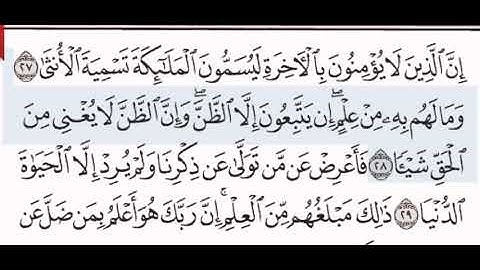 إِنَّ ٱلَّذِينَ لَا يُؤْمِنُونَ بِٱلْأَخِرَةِ لَيُسَمُّونَ ٱلْمَلَٰٓئِكَةَ تَسْمِيَةَ ٱلْأُنثَىٰ ٢٧
وَمَا لَهُم بِهِۦ مِنْ عِلْمٍ ۖ إِن يَتَّبِعُونَ إِلَّا ٱلظَّنَّ ۖ وَإِنَّ ٱلظَّنَّ لَا يُغْنِى مِنَ
ٱلْحَقِّ شَيْـًٔا ٢٨ فَأَعْرِضْ عَن مَّن تَوَلَّىٰ عَن ذِكْرِنَا وَلَمْ يُرِدْ إِلَّا ٱلْحَيَوٰةَ
ٱلدُّنْيَا ٢٩ ذَٰلِكَ مَبْلَغُهُم مِّنَ ٱلْعِلْمِ ۚ إِنَّ رَبَّكَ هُوَ أَعْلَمُ بِمَن ضَلَّ عَن